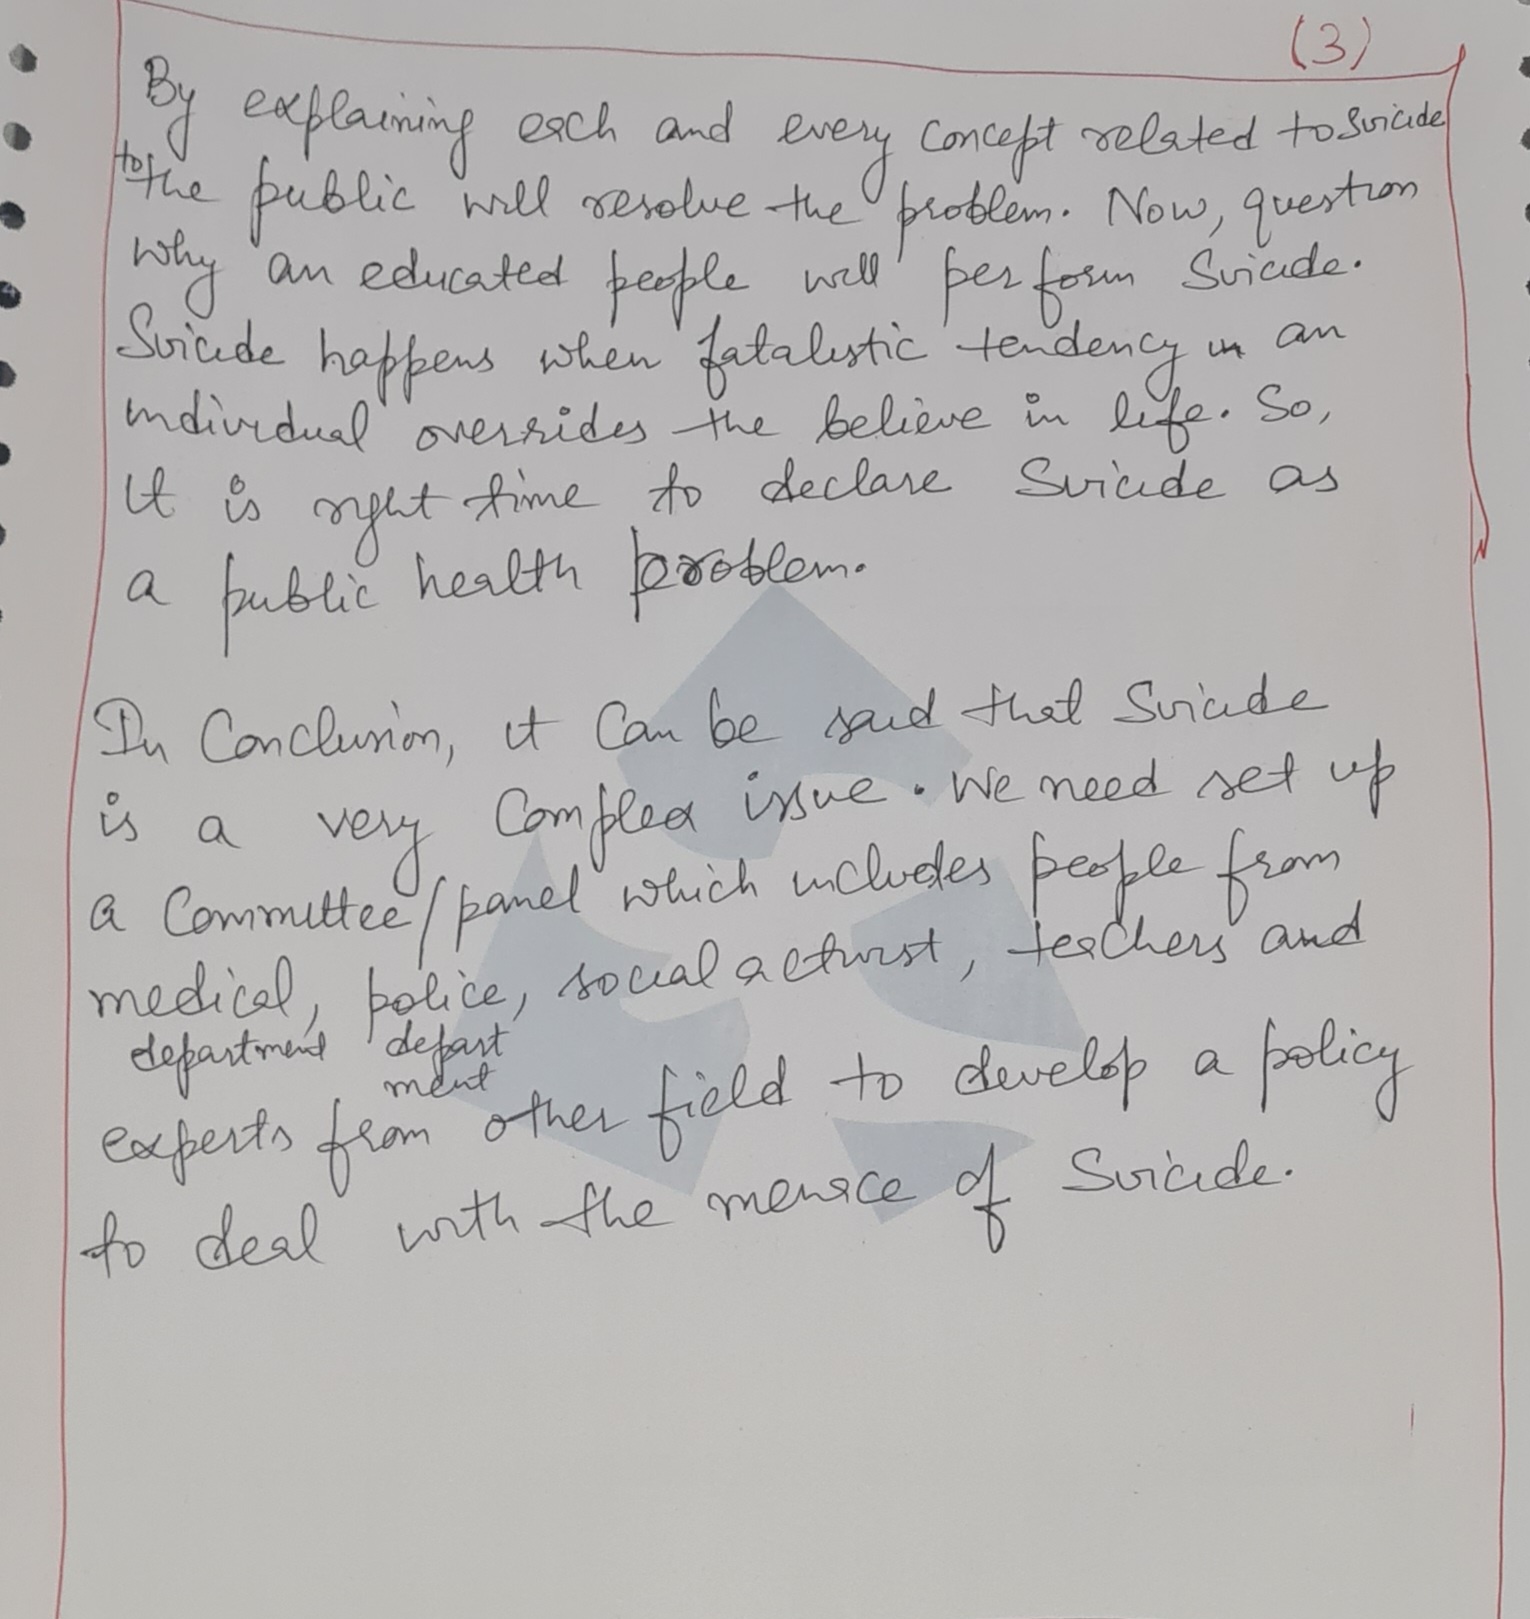 (3)
By explaining each and every concept related to suicide
to the public will resolve the problem. Now, question
why an educated people will perform Suicide.
Suicide happens when fatalistic tendency in an
individual overrides the believe in life. So,
it is right time to declare Suicide as
a public health problem.
In Conclusion, it can be said that Suicide
is a very Complex issue. We need set up
a Committee/panel which includes people from
medical, police, social activist, teachers and
department depart
ment
experts from other field to develop a policy
to deal with the menace of Suicide.